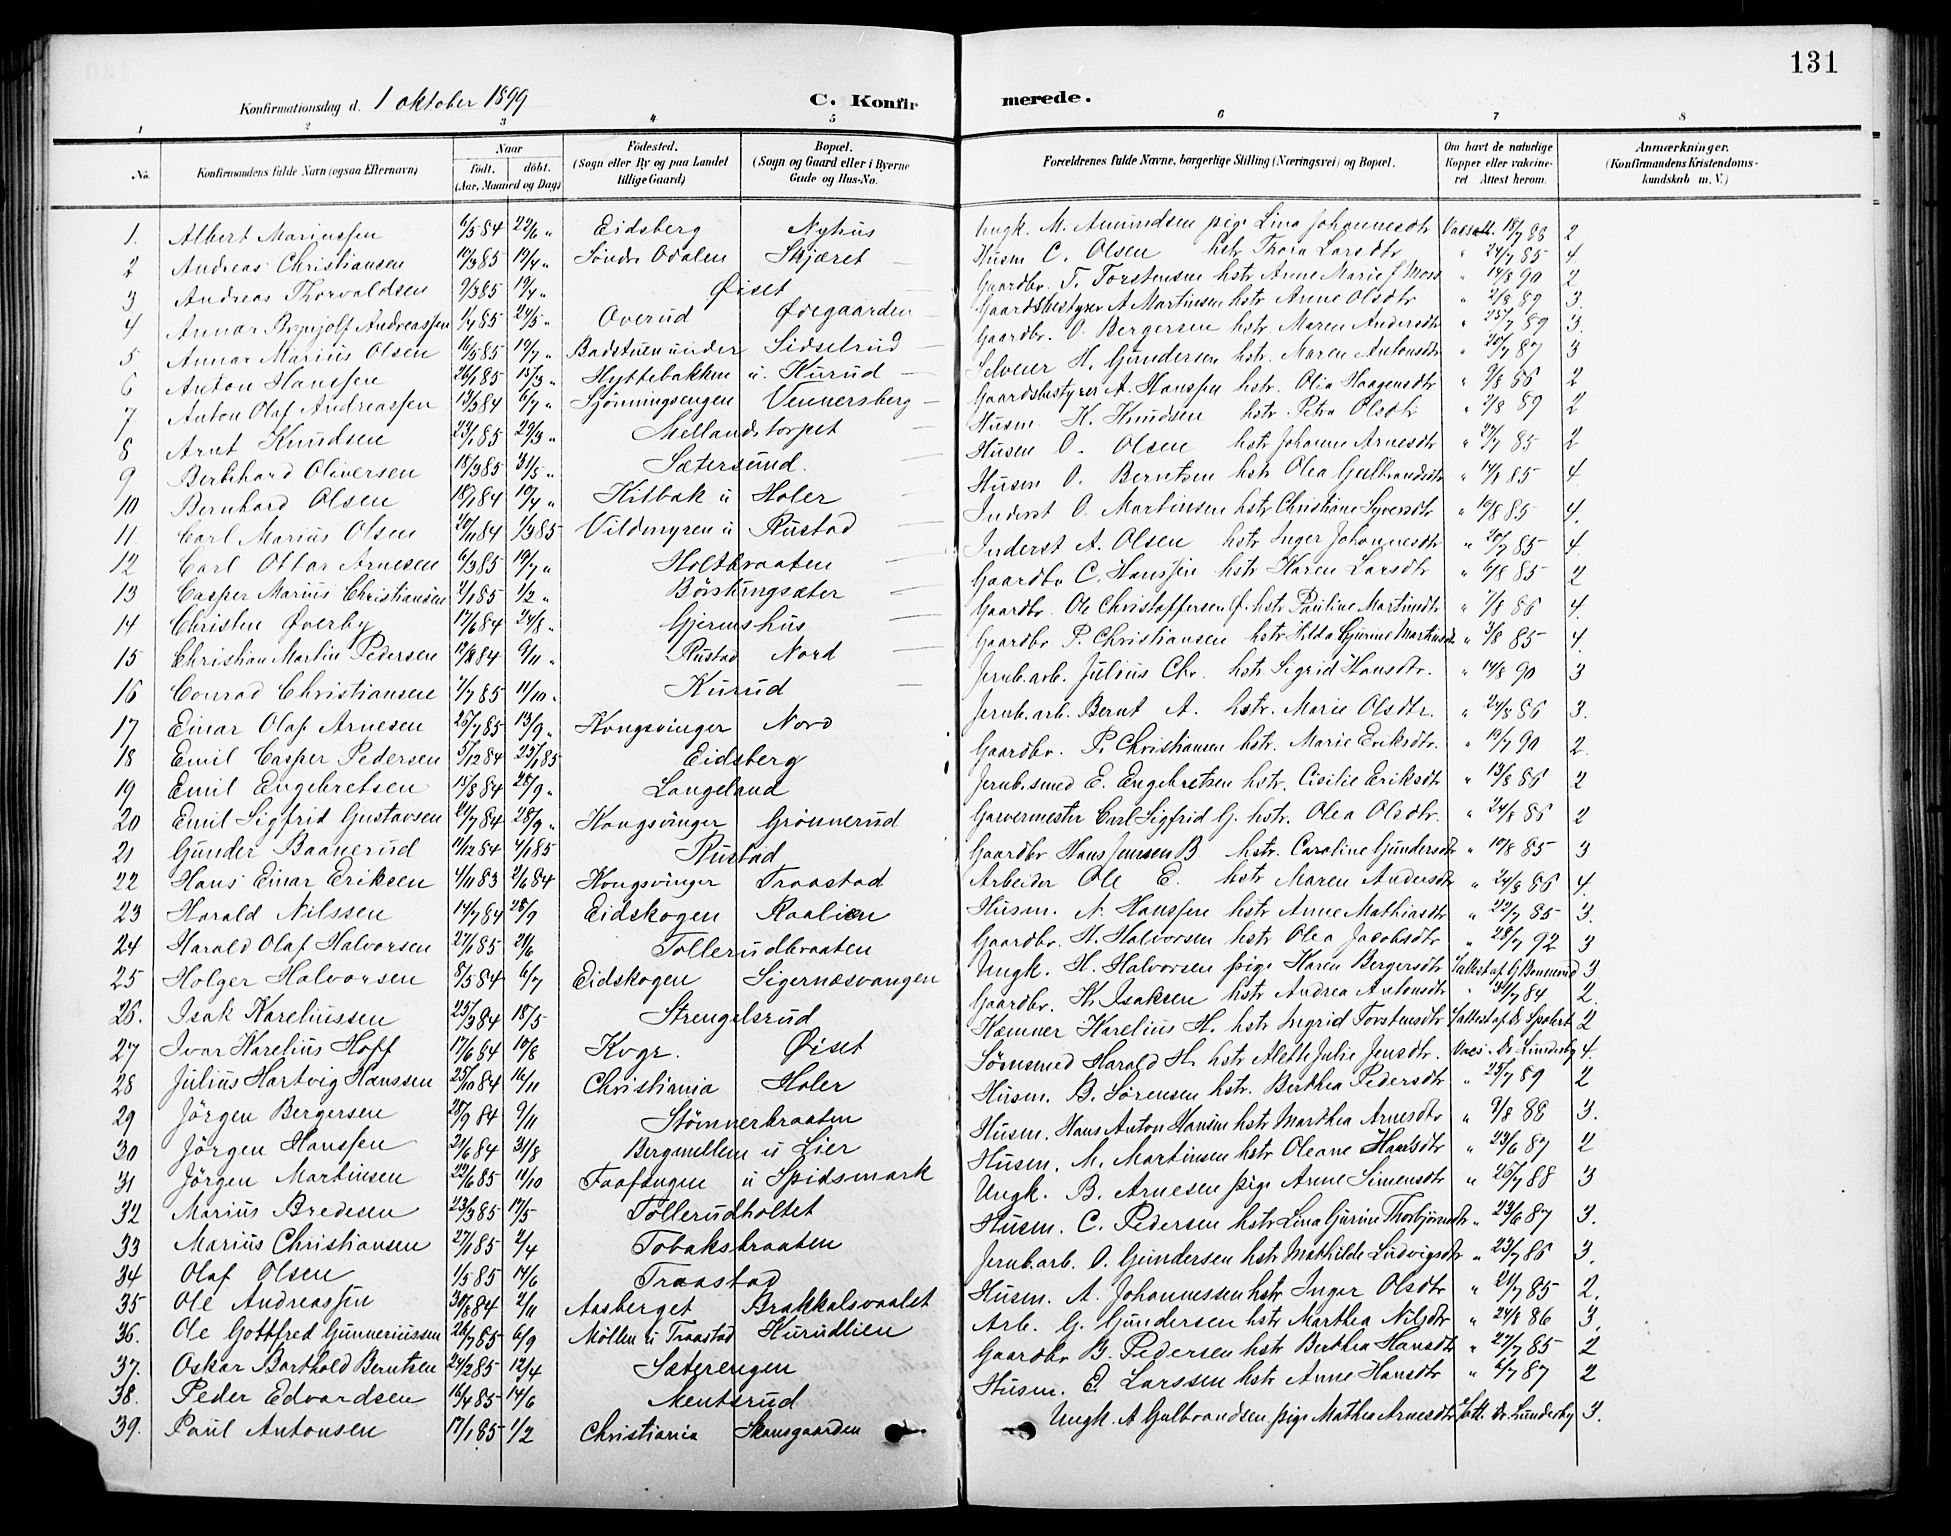 131
Konfirmationsdag d. 1 oktober 1899 C. Konfirmerede.
1 2 3 4 5 6 7 8
No. Konfirmandens fulde Navn (ogsaa Efternavn) Naar født. døbt. (Aar, Maaned og Dag) Fødested. (Sogn eller By og paa Landet tillige Gaard) Bopæl. (Sogn og Gaard eller i Byerne Gade og Hus-No. Forældrenes fulde Navne, borgerlige Stilling (Næringsvei) og Bopæl. Om havt de naturlige Kopper eller vakcineret. Attest herom. Anmærkninger. (Konfirmandens Kristendomskundskab m. V.)
1. Albert Mariussen 6/5 84 22/6 " Eidsberg Nyhus Ungk. M. Amundsen pige Lina Johannesdtr 18/7 88 2
2 Andreas Christiansen 10/3 85 19/4 " Søndr Odalen Skjæret Husm C. Olsen hstr Thora Larsdtr " 24/7 85 4
3 Andreas Thorvaldsen 9/3 85 19/4 " Øiset Gaardbr. T. Torstensen hstr Anne Marie f Moss " 14/8 90 2
4 Annar Brynjolf Andreassen 1/4 85 24/5 " Overud Ødegaarden Gaardsbestyrer A Martinsen hstr Anne Olsdtr " 2/8 89 3.
5 Annar Marius Olsen 16/5 85 19/7 " Badstuen under Sidselrud Gaardbr. O. Bergersen hstr. Maren Andersdtr " 25/7 89 3.
6 Anton Hanssen 26/1 85 15/3 " Hyttebakken u. Kurud Selveier H. Gundersen hstr. Maren Antonsdtr " 20/7 87 3
7 Anton Olaf Andreassen 13/3 84 6/7 " Sjønningsengen Vennersberg Gaardsbestyrer A. Hanssen hstr. Olia Haagensdtr " 9/8 86 2
8 Arnt Knudsen 23/1 85 29/3 " Mellandstorpet Husm K. Knudsen hstr. Petra Olsdtr " 2/8 89 2
9 Bernhard Oliversen 15/3 85 31/5 " Sætersund. Husm O. Olsen hstr Johanne Arnesdtr " 27/7 85 2
10 Bernhard Olsen 18/1 84 10/4 " Kilbak u Holer Husm O. Berntsen hstr Olea Gulbrandsdtr " 14/8 85 4.
11. Carl Marius Olsen 20/11 84 1/3 85 Vildmyren u Rustad Inderst O. Martinsen hstr Christiane Syversdtr " 10/8 85 4.
12 Carl Ottar Arnesen 6/3 85 19/7 " Holtbraaten Inderst A. Olsen hstr Inger Johannesdtr " 20/7 85 4.
13 Casper Marius Christiansen 4/1 85 1/2 " Børstingsæter Gaardbr C. Hanssen hstr Karen Larsdtr " 6/8 85 2
14 Christen Øverby 17/6 84 24/8 " Gjermshus Gaardbr. Ole Christoffersen Ø. hstr Pauline Martinsdtr " 7/8 86 4.
15 Christian Martin Pedersen 12/8 84 9/11 " Rustad Nord Gaardbr. P. Christiansen hstr Hilda Gurine Martinsdtr " 3/8 85 4.
16 Conrad Christiansen 7/7 85 11/10 " Kurud Jernb.arb. Julius Chr. hstr Sigrid Hansdtr. " 14/8 90 3
17 Einar Olaf Arnesen 25/7 85 13/9 " Kongsvinger Nord Jernb.arb. Bernt A. hstr. Marie Olsdtr. " 24/8 86 3.
18 Emil Casper Pedersen 5/12 84 25/1 85 Eidsberg Gaardbr. P. Christiansen hstr. Marie Eriksdtr. " 19/7 90 2.
19 Emil Engebretsen 15/8 84 28/9 " Langeland Jernb.smed E. Engebretsen hstr. Cicilie Eriksdtr " 13/8 86 2
20 Emil Sigfrid Gustavsen 21/7 84 28/9 " Kongsvinger Grønnerud Garvermester Carl Sigfrid G. hstr. Olea Olsdtr. " 24/8 86 2
21 Gunder Baanerud 11/12 84 4/1 85 Rustad Gaardbr Hans Jensen B hstr. Caroline Gundersdtr " 10/8 85 3
22 Hans Einar Eriksen 4/11 83 2/6 84 Kongsvinger Traastad Arbeider Ole E. hstr Maren Andersdtr " 24/8 86 4.
23 Harald Nilssen 14/7 84 28/9 Eidskogen Raalien Husm. N. Hanssen hstr Anne Mathiasdtr " 22/7 85 3.
24 Harald Olaf Halvorsen 27/1 85 21/6 Tollerudbraaten Gaardbr. H. Halvorsen hstr Olea Jacobsdtr " 28/7 92 3
25 Holger Halvorsen 8/5 84 6/7 Eidskogen Sigernæsvangen Ungk. H. Halvorsen pige Karen Bergersdtr 3
26. Isak Kareliussen 25/3 84 18/5 Strengelsrud Gaardbr. K. Isaksen hstr Andrea Antonsdtr " 31/7 84 2.
27 Ivar Karelius Hoff 17/6 84 10/8 Kvgr. Øiset Kæmner Karelius H. hstr Ingrid Torstensdtr 2
28 Julius Hartvig Hanssen 25/10 84 16/11 Christiania Holer Sømsmed Harald H. hstr Alette Julie Jensdtr. Dr. Lunderby 4.
29 Jørgen Bergersen 28/9 84 9/11 Stømnerbraaten Husm. B. Sørensen hstr. Berthea Pedersdtr " 25/7 89 2
30 Jørgen Hanssen 21/6 84 31/8 Bergmellem u Lier Husm. Hans Anton Hansen hstr Marthea Arnesdtr " 9/8 88 3.
31 Jørgen Martinsen 22/6 85 11/10 Taafengen u Spidsmark Husm. M. Martinsen hstr Oleane Hansdtr " 23/6 87 2
32 Marius Bredesen 23/3 85 17/5 Tollerudholtet Ungk. B. Arnesen pige Anne Simensdtr " 26/7 88 3
33 Marius Christiansen 27/1 85 2/4 Tobaksbraaten Husm. C. Pedersen hstr Lina Gurine Thorbjørnsdtr " 23/6 87 3.
34 Olaf Olsen 1/5 85 14/6 Traastad Jernb.arb. O. Gundersen hstr Mathilde Ludvigsdtr " 23/7 86 3.
35 Ole Andreassen 30/8 84 2/11 Aasberget Brakkalsvaalet Husm. A. Johannessen hstr Inger Olsdtr " 21/7 85 2.
36. Ole Gottfred Gunneriussen 26/7 85 6/9 Møllen u Traastad Kurudlien Arb. G. Gundersen hstr Marthea Nilsdtr " 24/8 86 3.
37. Oskar Barthold Berntsen 24/2 85 12/4 Sæterengen Gaardbr B. Pedersen hstr Berthea Hansdtr " 27/7 85 2
38. Peder Edvardsen 16/4 85 14/6 Mentsrud Husm. E. Larssen hstr Anne Hansdtr " 6/7 87 2
39. Paul Antonsen 17/1 85 1/2 Christiania Skansgaarden Ungk. A Gulbrandsen pige Mathea Arnesdtr Att. Dr. Lunderby 3.